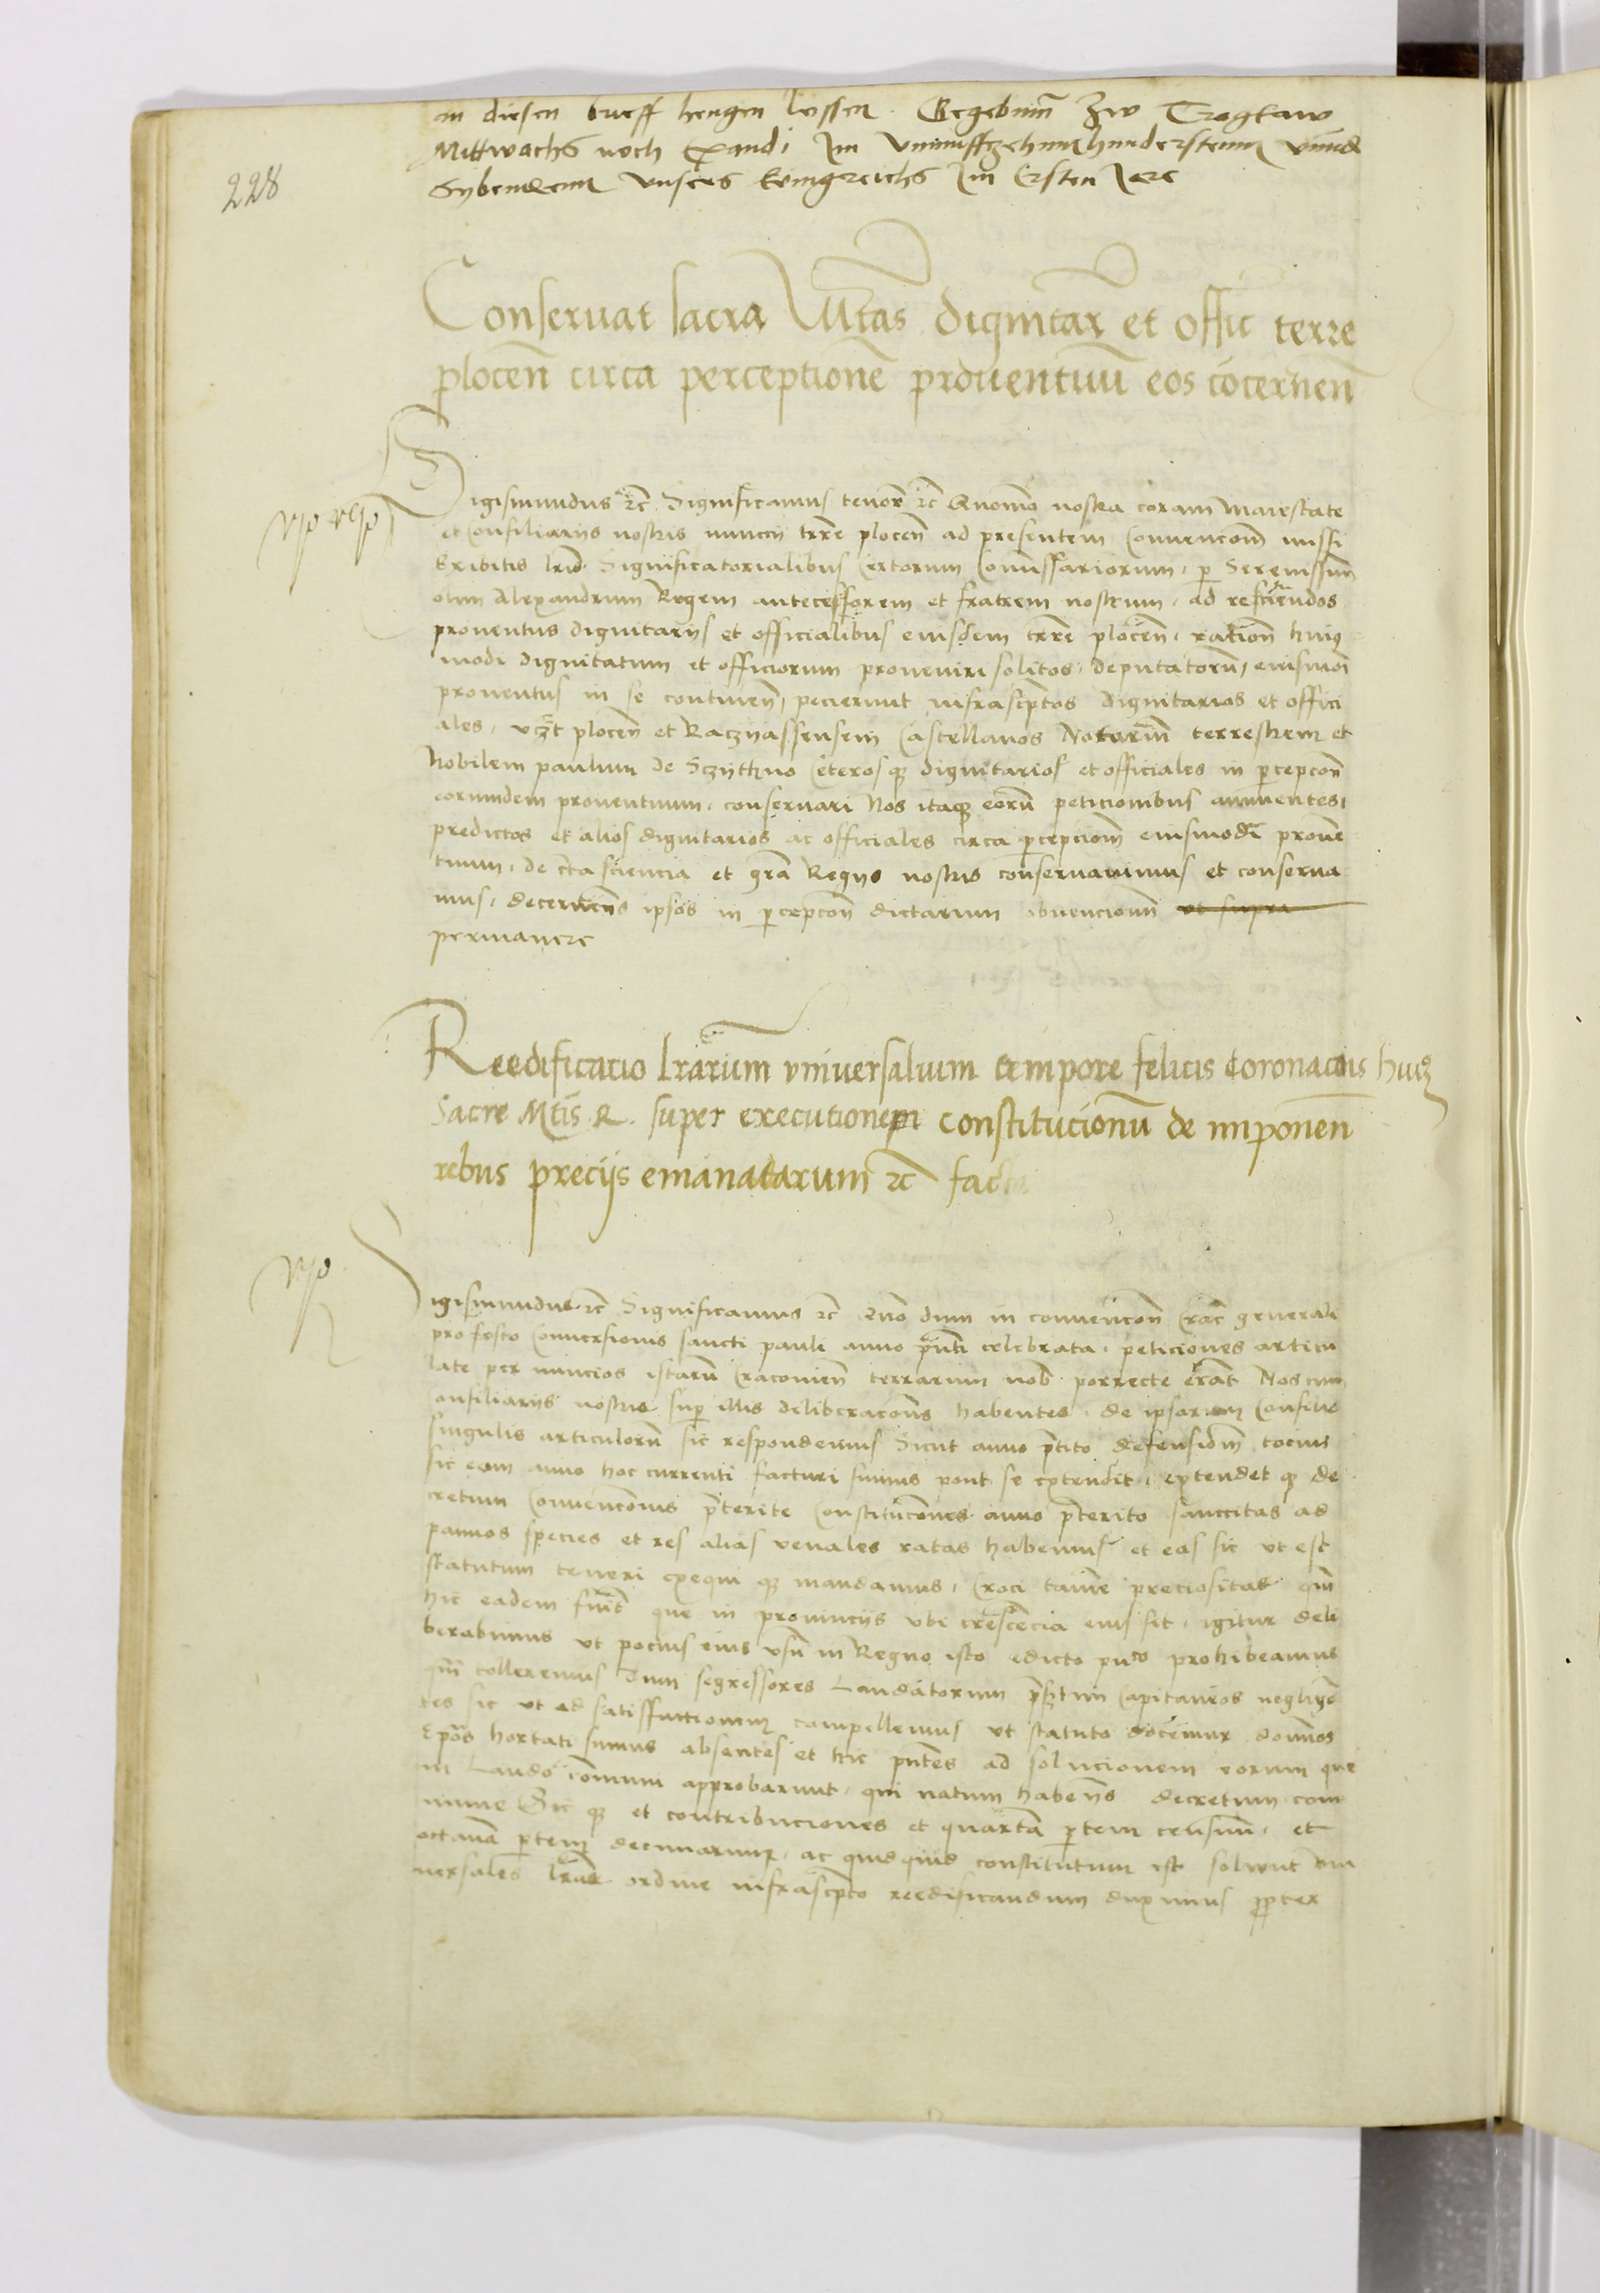 an diesen brieff hengen lossen. Gegebenn zw Crogkaw
Mittwachs noch Exaudi Im Vunuffzehennhunderstenn vnnd
Sybendenn vnsers konigreichs Im Ersten Jare
228
Conseruat sacra Mtas dignitar et offic terre
plocen̄ circa perceptionē prouentuū eos cōcernen̄
Sigismundus etc Significamus tenore etc Quomo nostra coram Maiestate
et Consiliariis nostris nunccij terre plocen̄ ad presentem Conuencionē missi
Exibitis lris Significatorialibus certorum Comissariorum, per Serenissimū
olim Alexandrum Regem antecessorem et fratrem nostrum, ad resciendos
prouentus dignitariis et officialibus eiusdem terre plocen̄, ration̄ huiq
modi dignitatum et officiorum prouenire solitos, deputatorū, eiusmōi
prouentus in se continen̄, pecierunt infrascriptos dignitarios et offici
ales, vczt plocen̄ et Raczyassensem Castellanos Notariū terrestrem et
Nobilem paulum de Sczythno Ceterosq dignitarios et officiales in percepcōn
eorumdem prouentuum, conseruari Nos itaq eorū peticionibus annuentes,
predictos et alios dignitarios ac officiales circa percepcionē eiusmodi prouen
tuum, de certa sciencia et grā Regno nostris conseruauimus et conserua
mus, decernens ipsos in percepcōn dictarum obuencionū ut supra
permanere
Reedificatio lrarum vniuersalium tempore felicis Coronacōis huiq
Sacre Mtis R. super executionem constitucionū de imponen̄
rebus preciis emanatarum etc facta
Sigismundus etc Significamus etc Quo dum in conuencōn Crac generali
pro festo Conuersionis sancti pauli anno pnti celebrata, peticiones articu
late per nuncios istarū Cracouien̄ terrarum nob porrecte erāt Nos cum
onsiliariis nostris sup illis deliberacōns habentes, de ipsorum Consilio
singulis articulorū sic respondemus Sicut anno ptito defensionē tocius
sic eam anno hoc currenti facturi sumus pout se extendit, extendet q de
cretum Conuencionis pterite Constitucōnes anno pterito sanccitas ad
pannos species et res alias venales ratas habemus et eas sic vt est
statutum teneri exequi q mandamus, Croci tamē preciositas qm̄
hic eadem fuit que in prouinciis vbi crescencia eius sit, igitur deli
berabimus vt pocius eius vsū in Regno isto edicto pub prohibeamus
qm̄ tolleremus Dum segressores Laudatorum psertim Capitaneos negligē
tes sic vt ad satisfactionem compellemus vt statuto docemur domnos
Epos hortati sumus absentes et hic pntes ad solucionem eorum que
in Laudo communi approbarunt, qui ratum habens decretum com
mune Sic q et contribuciones et quartā ptem censuū, et
octauā ptem decimarum, ac quidquid constitutum est soluent vni
uersales lras ordine infrascripto reedificandum duximus propter